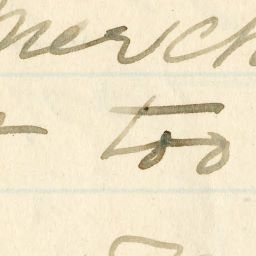 merch
too